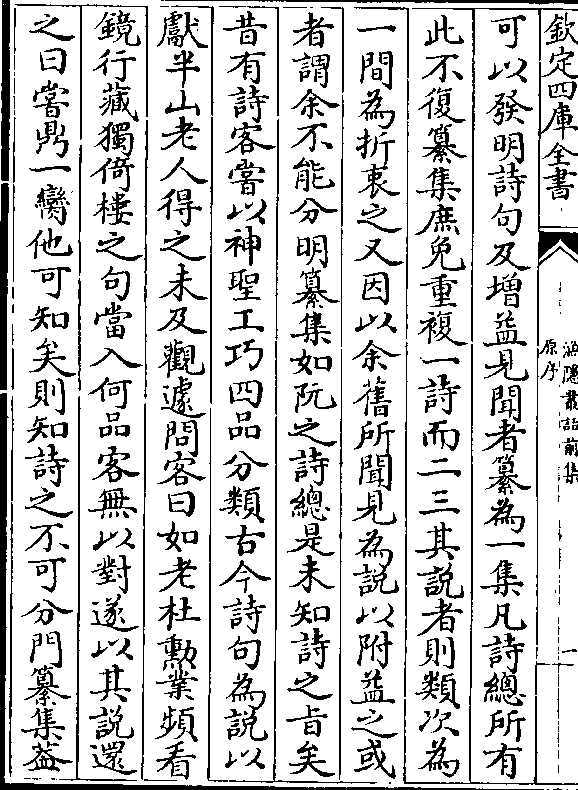 欽定四庫全書
漁隱叢話前集
原序
一
可以發明詩句及増益見聞者纂為一集凡詩總所有
此不復纂集庶免重複一詩而二三其說者則類次為
一間為折衷之又因以余舊所聞見為說以附益之或
者謂余不能分明纂集如阮之詩總是未知詩之旨矣
昔有詩客嘗以神聖工巧四品分類古今詩句為說以
獻半山老人得之未及觀遽問客曰如老杜勲業頻看
鏡行藏獨倚樓之句當入何品客無以對遂以其說還
之曰嘗鼎一臠他可知矣則知詩之不可分門纂集葢